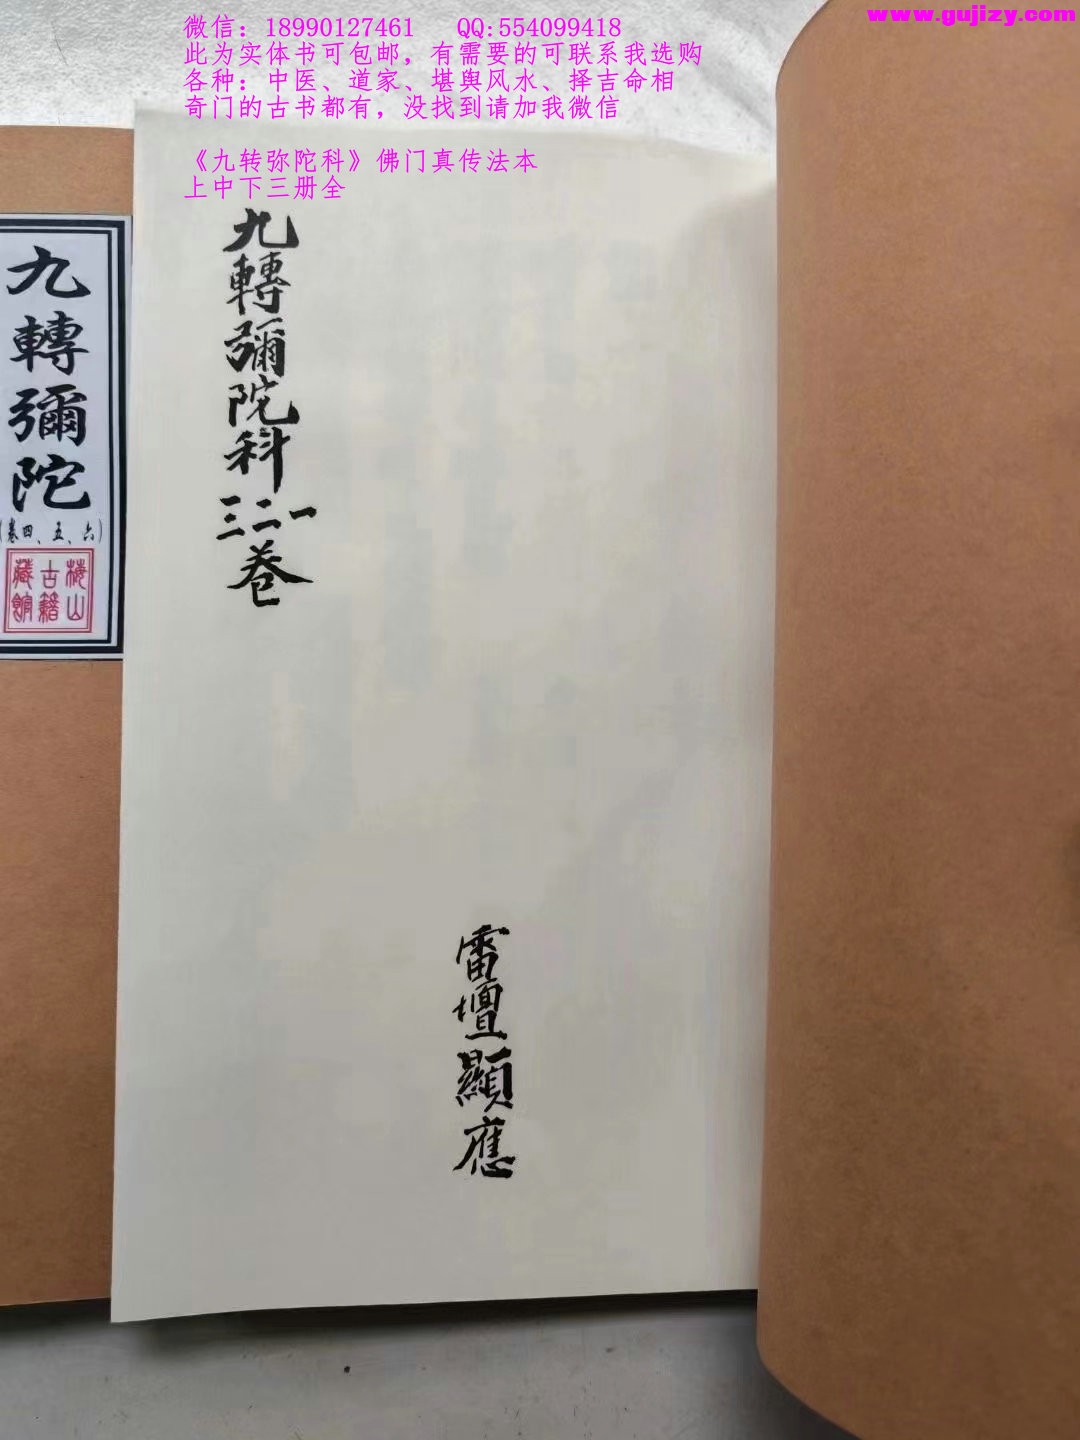 www.gujizy.com
微信：18990127461 QQ:554099418
此为实体书可包邮，有需要的可联系我选购
各种：中医、道家、堪舆风水、择吉命相
奇门的古书都有，没找到请加我微信
《九转弥陀科》佛门真传法本
上中下三册全
九轉彌陀科
三二一
卷
雷壇顯應
九轉彌陀
（卷四、五、六）
梅山
古籍
藏館